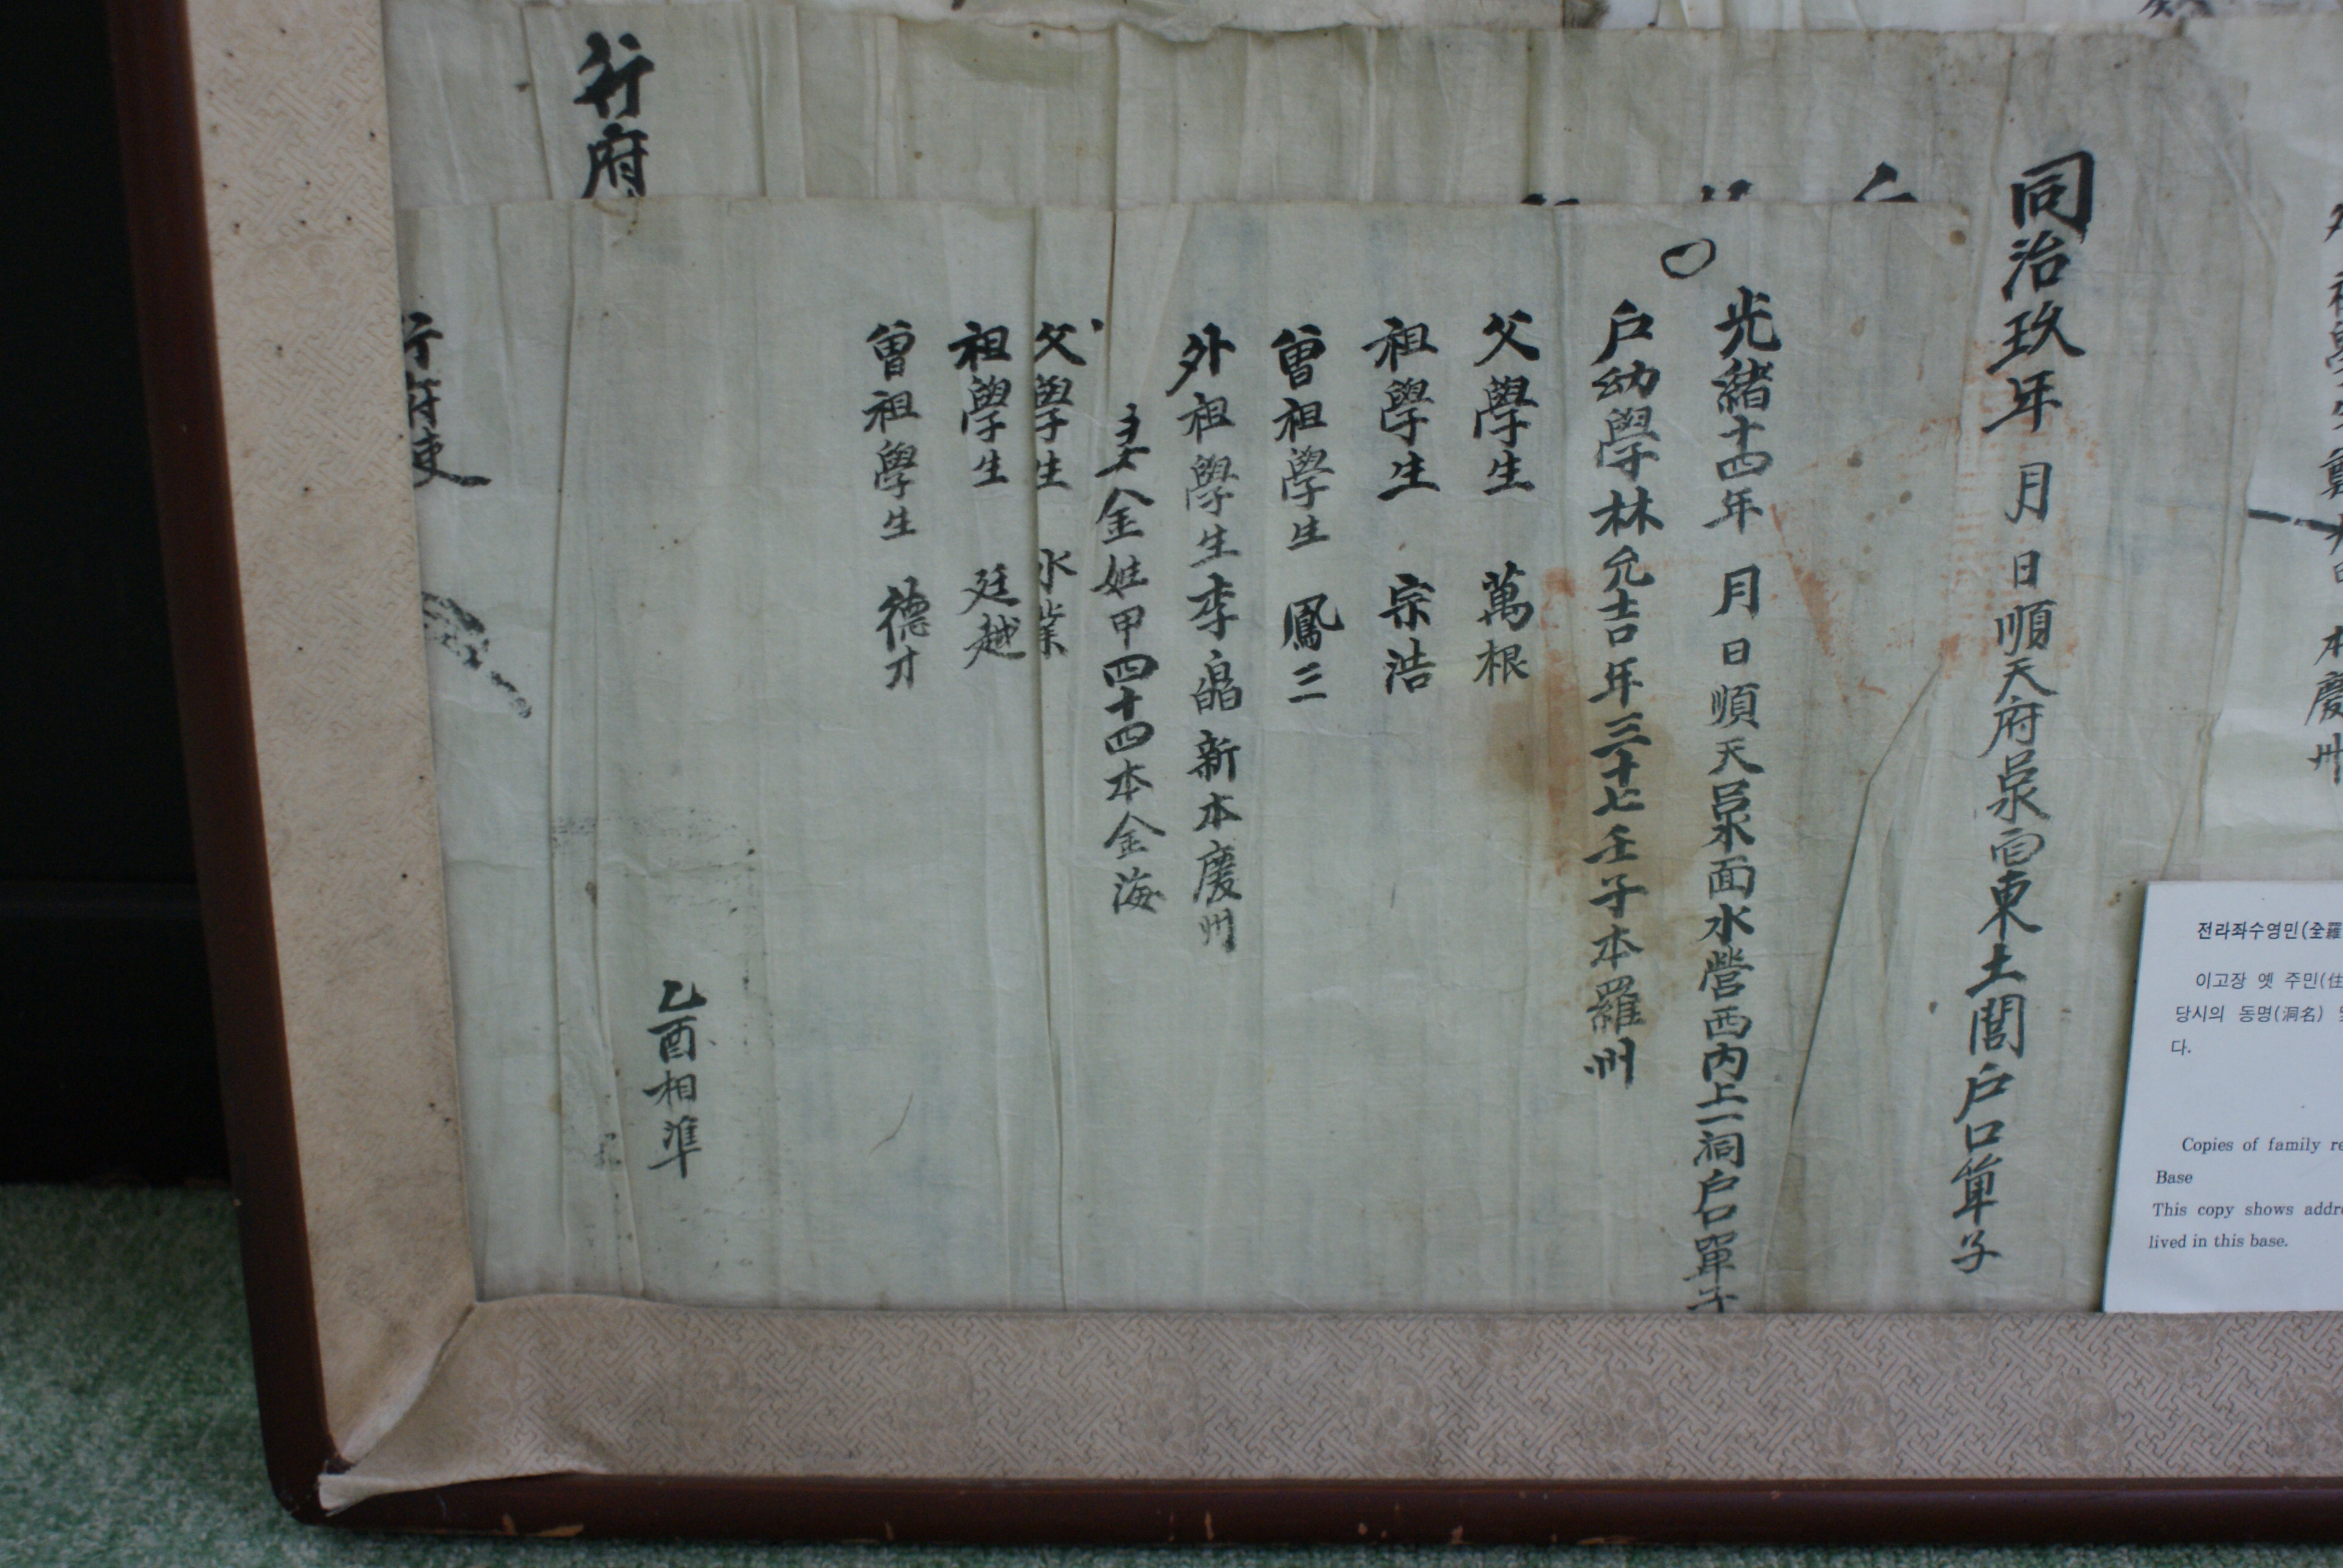 本慶州
同治玖年 月 日順天府呂泉面東土閭戶口單子
光緖十四年 月 日順天呂泉面水營西內上一洞戶口單子
戶幼學林允吉年三十七壬子本羅州
父學生 萬根
祖學生 宗浩
曾祖學生 鳳三
外祖學生李皛新本慶州
妻金姓甲四十四本金海
父學生 水業
祖學生 廷越
曾祖學生 德才
乙酉相準
行府
行府使
전라좌수영민(全羅
이고장 옛 주민(住
당시의 동명(洞名)
다.
Copies of family re
Base
This copy shows addre
lived in this base.